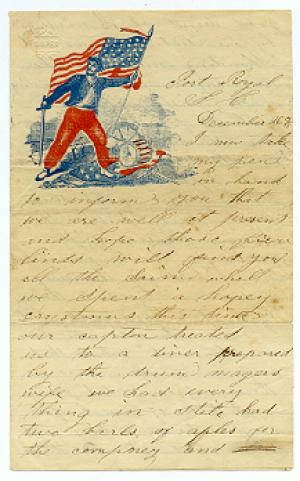 Port Royal
S. C.
December 186
I now take
my pen
in hand
to inform you that
we are well at present
and hope those few
lines will find you
all the same whell
we spent a hapey
this time
our capton treated
us to a diner prepared
by the drum magers
wife we had every
thing in state had
two barls of aples for
the compney and